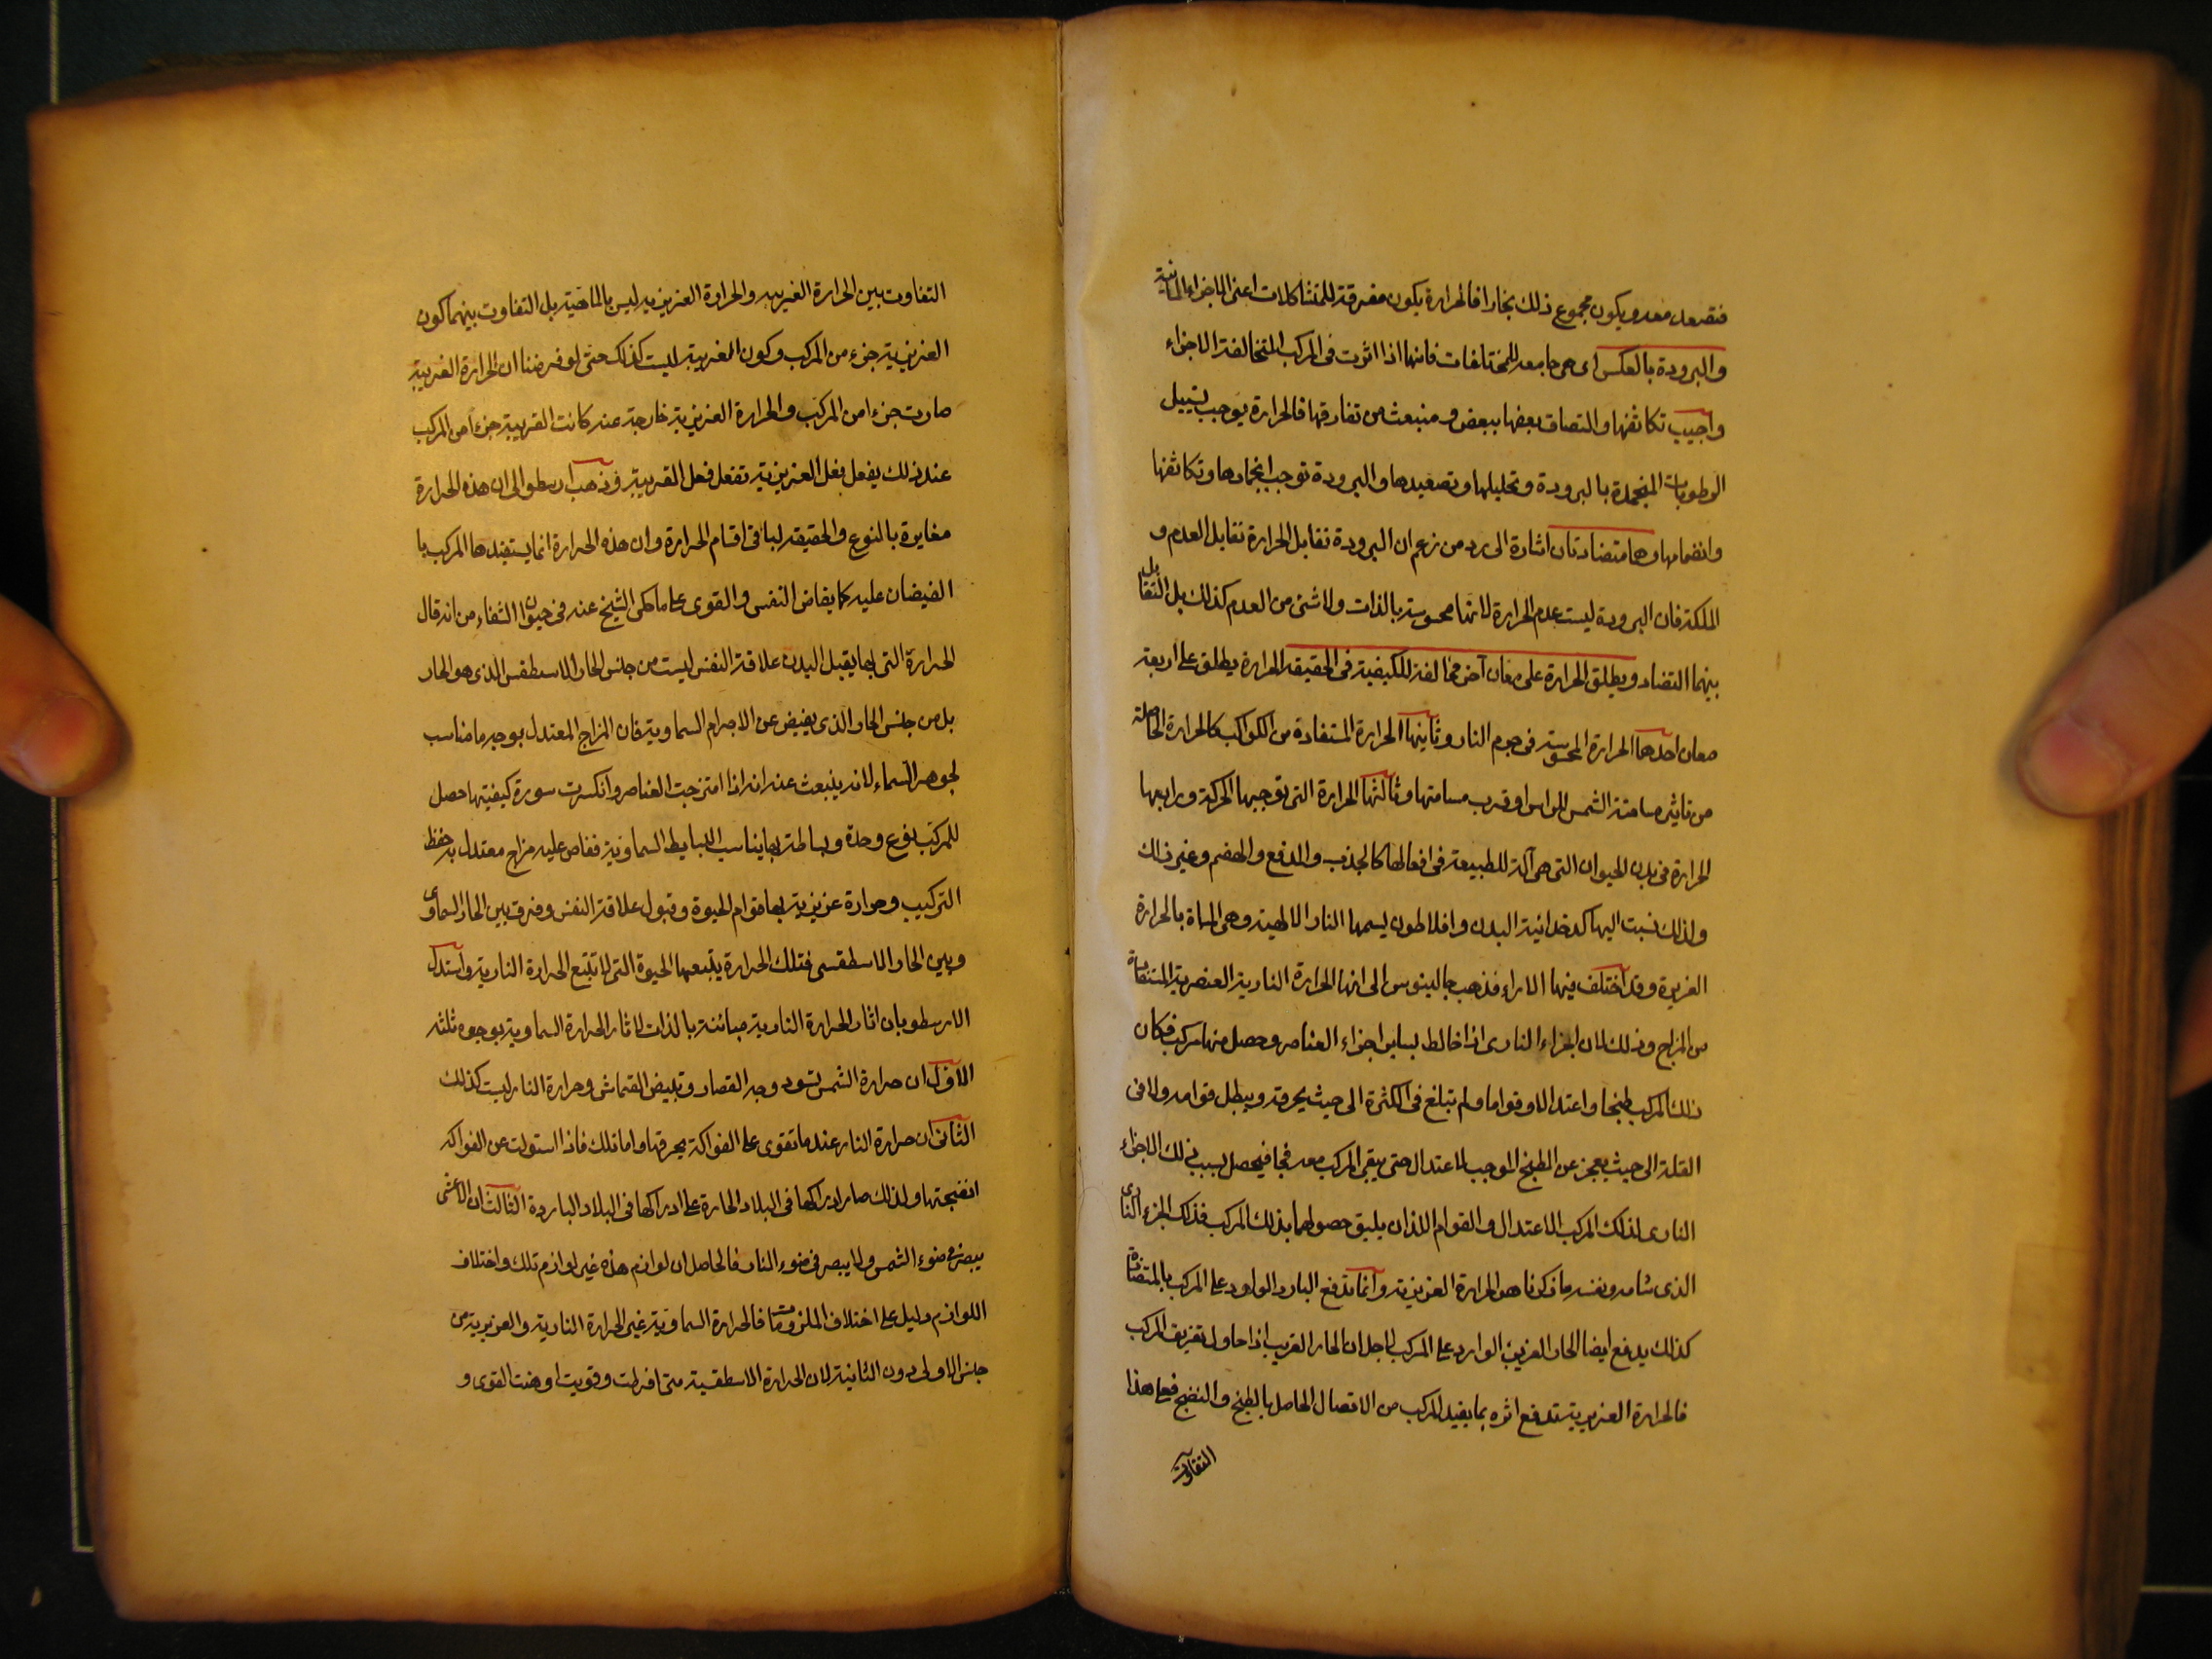 فتصعد معه ويكون مجموع ذلك بخارا فالحرارة يكون مفرقة للمتشاكلات اعنى الاجزاء المائية
والبرودة بالعكس اى هى جامعه للمختلفات فانها اذا اثرت فى المركب المتخالفة الاجزاء
واجيب تكاثفها والتصاق بعضها ببعض و منبعث من تفارقها فالحرارة يوجب تسييل
الرطوبات المنجمدة بالبرودة وتحليلها وتصعيدها والبرودة توجب انجمادها وتكاثفها
وانضمامها وهما متضادتان اشارة الى رد من زعم ان البرودة تقابل الحرارة تقابل العدم و
الملكة فان البرودة ليست عدم الحرارة لانها محسوسة بالذات ولا شئ من العدم كذلك بل التقابل
بينهما التضاد ويطلق الحرارة على معان آخر مخالفة للكيفية فى الحقيقه الحرارة يطلق على اربعة
معان احدهما الحرارة المحسوسة فى جرم النار وثانيها الحرارة المستفادة من الكواكب كالحرارة الحاصلة
من تاثير مسامتة الشمس للراس او قرب مسامتها وثالثها الحرارة التى توجبها الحركة ورابعها
الحرارة فى بدن الحيوان التى هى آلة للطبيعة فى افعالها كالجذب والدفع والهضم وغير ذلك
ولذلك نسبت اليها كدخدائية البدن وافلاطون يسمها النار الالهية وهى المسماة بالحرارة
الغريزة وقد اختلف فيها الاراء فذهب جالينوس الى انها الحرارة النارية العنصرية المستفادة
من المزاج وذلك لان الجزء النارى اذا خالط لساير اجزاء العناصر وحصل منها مركب فكان
ذلك المركب طبخا واعتدالا وقواما ولم تبلغ فى الكثرة الى حيث يحرقه ويبطل قوامه ولا فى
القلة الى حيث يعجز عن الطبخ الموجب للاعتدال حتى يبقى المركب معه فجا فيحصل بسبب ذلك الاجزاء
النارى لذلك المركب الاعتدال والقوام اللذان يليق حصولهما بذلك المركب فذلك الجزء النارى
الذى شامه ونفسه ما ذكرنا هو الحرارة الغريزية وانما تدفع البارد الوارد على المركب بالمتضادة
كذلك يدفع ايضا الحار الغريب الوارد على المركب لاجل ان الحار الغريب اذا حاول تفريق المركب
فالحرارة الغريزية تدفع اثره بما يفيد للمركب من الاتصال الحاصل بالطبخ والنضج فعلى هذا
التفاوت
التفاوت بين الحرارة الغريبه والحرارة الغريزيه ليس بالماهية بل التفاوت بينهما كون
الغريزية جزء من المركب وكون الغريبة ليست كذلك حتى لو فرضنا ان الحرارة الغريبة
صارت جزءا من المركب والحرارة الغريزية خارجة عنه كانت الغريبة جزءا من المركب
عند ذلك يفعل فعل الغريزية تفعل فعل الغريبة وذهب ارسطو الى ان هذه الحرارة
مغايرة بالنوع والحقيقه لباقى اقسام الحرارة وان هذه الحرارة انما يستفيدها المركب با
الفيضان عليه كما يفاض النفس والقوى على ما حكى الشيخ عنه فى حيوان الشفاء من انه قال
الحرارة التى بها يقبل البدن علاقة النفس ليست من جانس الحار الاسطقس الذى هو الحار
بل من جنس الحار الذى يفيض عن الاجرام السماوية فان المزاج المعتدل بوجه ما مناسب
لجوهر السماء لانه ينبعث عنه انه اذا امتزجت العناصر وانكسرت سورة كيفيتها حصل
للمركب نوع وحدة وبساطة بها يناسب البسايط السماوية ففاض عليه مزاج معتدل به حفظ
التركيب وحرارة غريزية بها قوام الحيوة وقبول علاقة النفس وفرق بين الحار السماوى
وبين الحار الاسطقسى فتلك الحرارة يتبعها الحيوة التى لا تتبع الحرارة النارية واستدل
الارسطو بان اثار الحرارة النارية مبائنة بالذات لاثار الحرارة السماوية بوجوه ثلثه
الاول ان حرارة الشمس تسود وجه القصار وتبيض القماش وحرارة النار ليست كذلك
الثانى ان حرارة النار عندما تقوى على الفواكه يحرقها واما تلك فاذا استولت عن الفواكه
انضجتها ولذلك صار ادراكها فى البلاد الحارة على ادراكها فى البلاد الباردة الثالث ان الاعشى
يبصر فى ضوء الشمس ولا يبصر فى ضوء النار فالحاصل ان لوازم هذه غير لوازم تلك واختلاف
اللوازم دليل على اختلاف الملزومات فالحرارة السماوية غير الحرارة النارية والغريزية من
جنس الاولى دون الثانية لان الحرارة الاسطقسية متى افرطت وقويت اوهنت القوى و